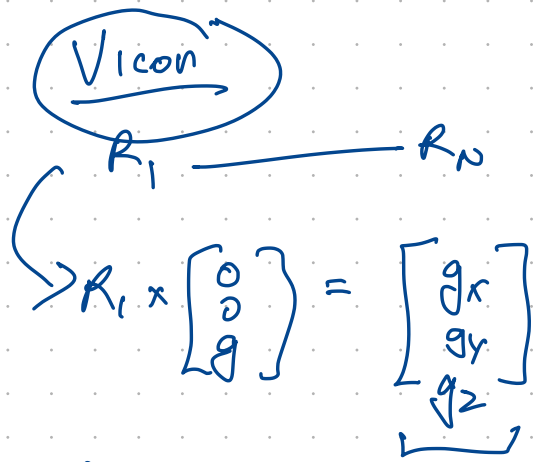 Vicon
R₁ —— R_N
R₁ × [0 0 g] = [gx gy gz]